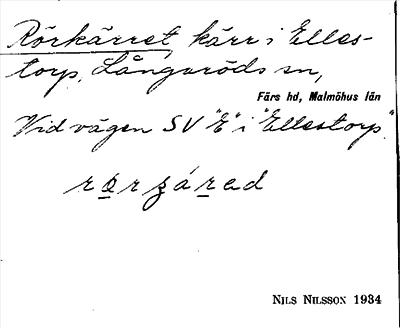 Rörkärret, kärr i Elles-
torp, Långaröds sn,
Färs hd, Malmöhus län
Vid vägen SV "E" i "Ellestorp".
NILS NILSSON 1934